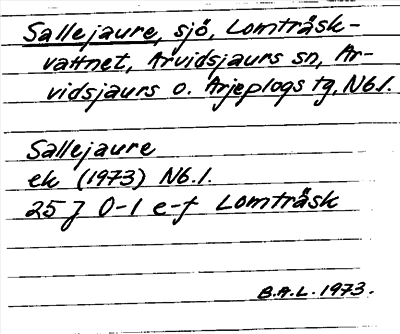 Sallejaure, sjö, Lomträsk-
vattnet, Arvidsjaurs sn, Ar-
vidsjaurs o. Arjeplogs tg, Nb.l.
Sallejaure
ek (1973) Nb.l.
25 J 0-1 e-f Lomträsk
B.A.L. 1973.